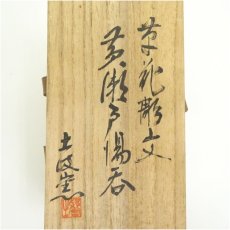 草花彫文
黄瀬戸湯呑
土岐窯